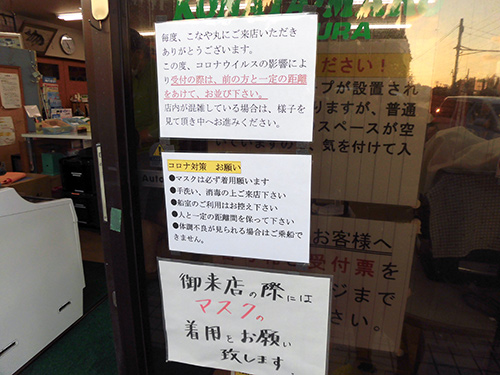 毎度、こなや丸にご来店いただき
ありがとうございます。
この度、コロナウイルスの影響により
受付の際は、前の方と一定の距離
をあけて、お並び下さい。
店内が混雑している場合は、様子を
見て頂き中へお進みください。
コロナ対策 お願い
●マスクは必ず着用願います
●手洗い、消毒の上ご来店下さい
●船室のご利用はお控え下さい
●人と一定の距離間を保って下さい
●体調不良が見られる場合はご乗船で
きません。
御来店の際には
マスクの
着用をお願い
致します
ださい!
プが設置され
りますが、普通
スペースが空
気を付けて入
お客様へ
受付票を
ジまで
さい。